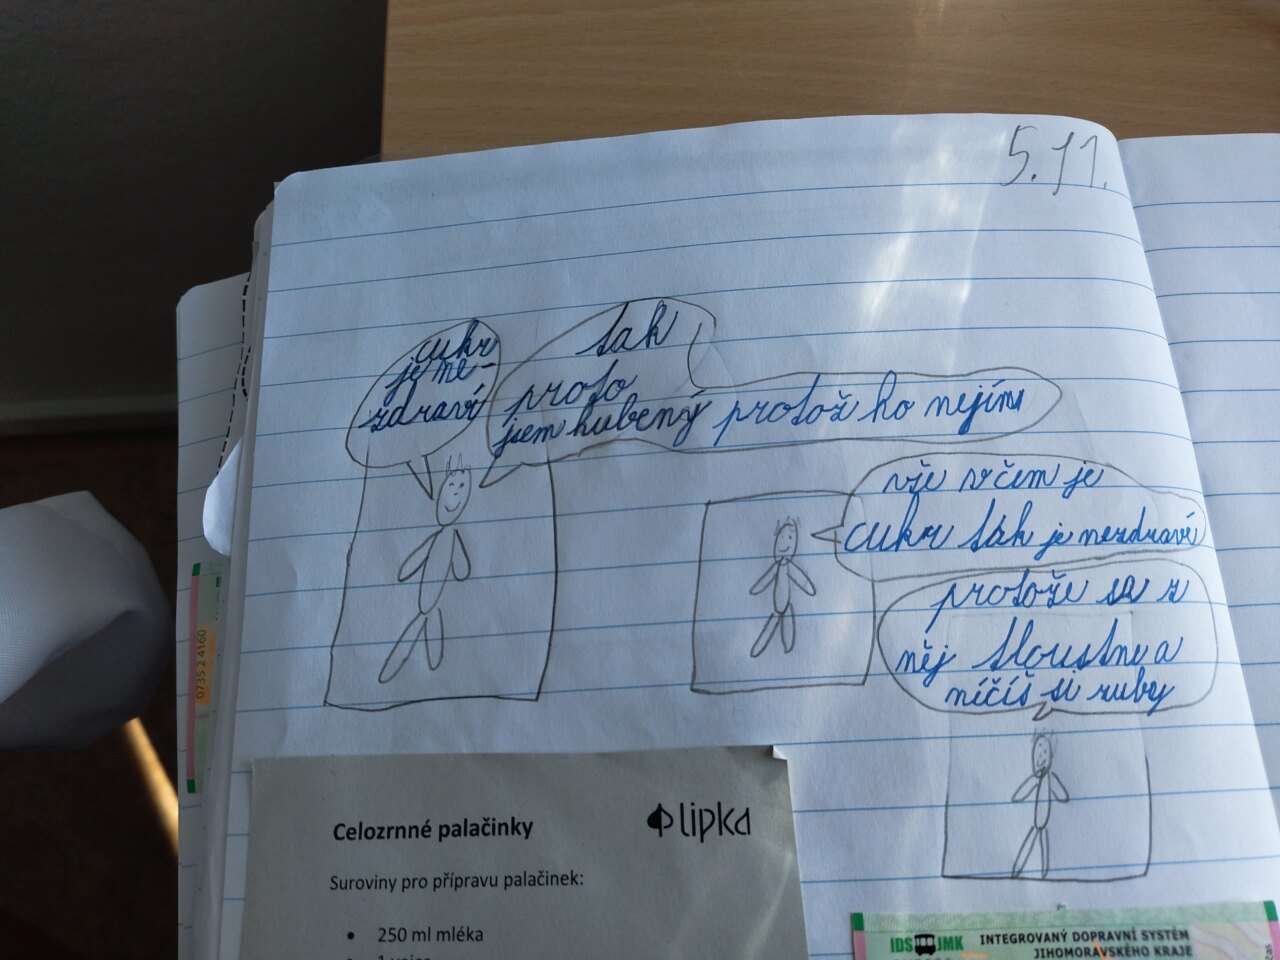 5.11.
cukr
je ne-
zdraví
tak
proto
jsem hubený protož ho nejím
vše včem je
cukr tak je nezdraví
protože se z
něj tloustne a
níčíš si zuby
Celozrnné palačinky
lipka
Suroviny pro přípravu palačinek:
• 250 ml mléka
0735 2 4160
IDS JMK
INTEGROVANÝ DOPRAVNÍ SYSTÉM
JIHOMORAVSKÉHO KRAJE